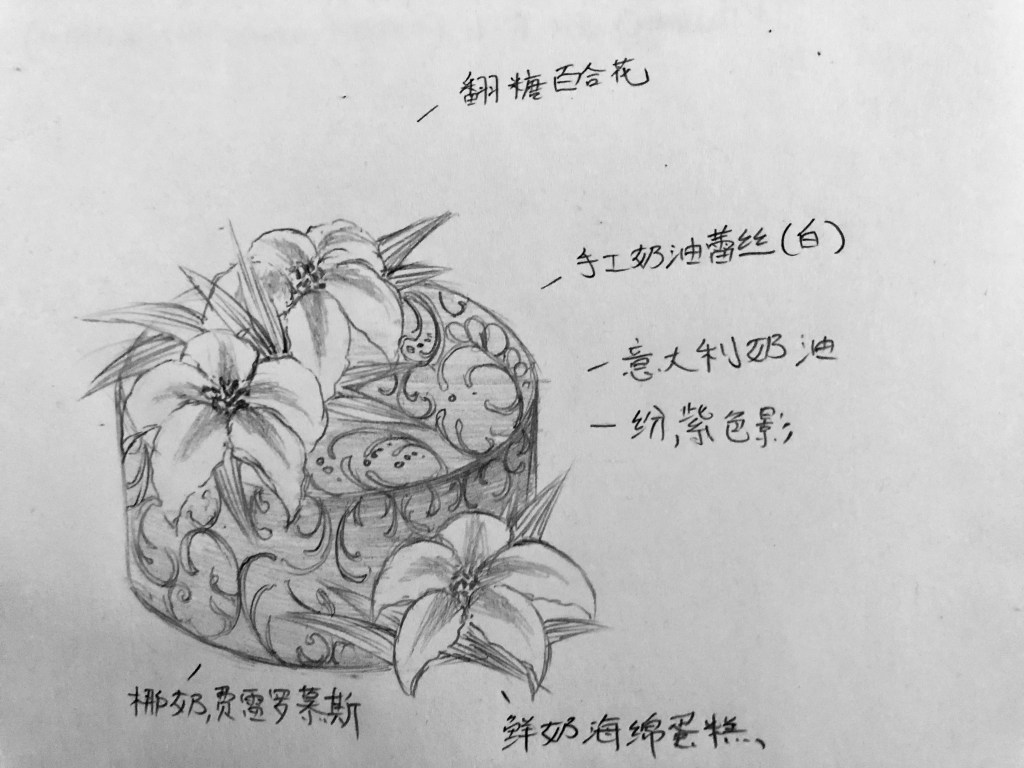 翻糖百合花
手工奶油蕾丝(白)
- 意大利奶油
- 纷,紫色影
椰奶,费雷罗慕斯
鲜奶海绵蛋糕、